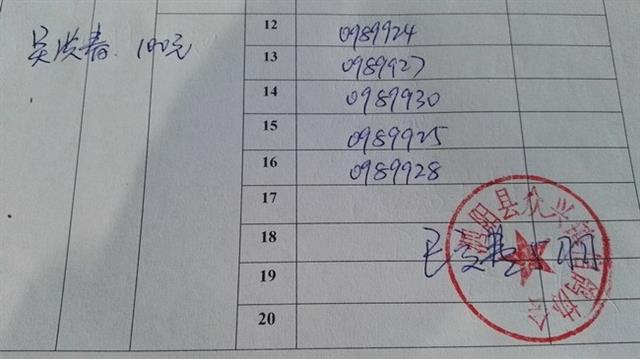 吴洪春 100元
12 0989924
13 0989927
14 0989930
15 0989925
16 0989928
17
18
19
20
泗阳县众兴 信鸽协会